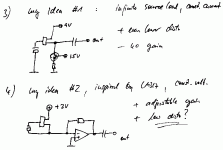 3) my idea #1: infinite source load, const. current
9V
out
+ even lower dist.
- 40 gain
15V
4) my idea #2, inspired by LM34, const. volt.
+ adjustable gain
+ low dist?
+3V
out